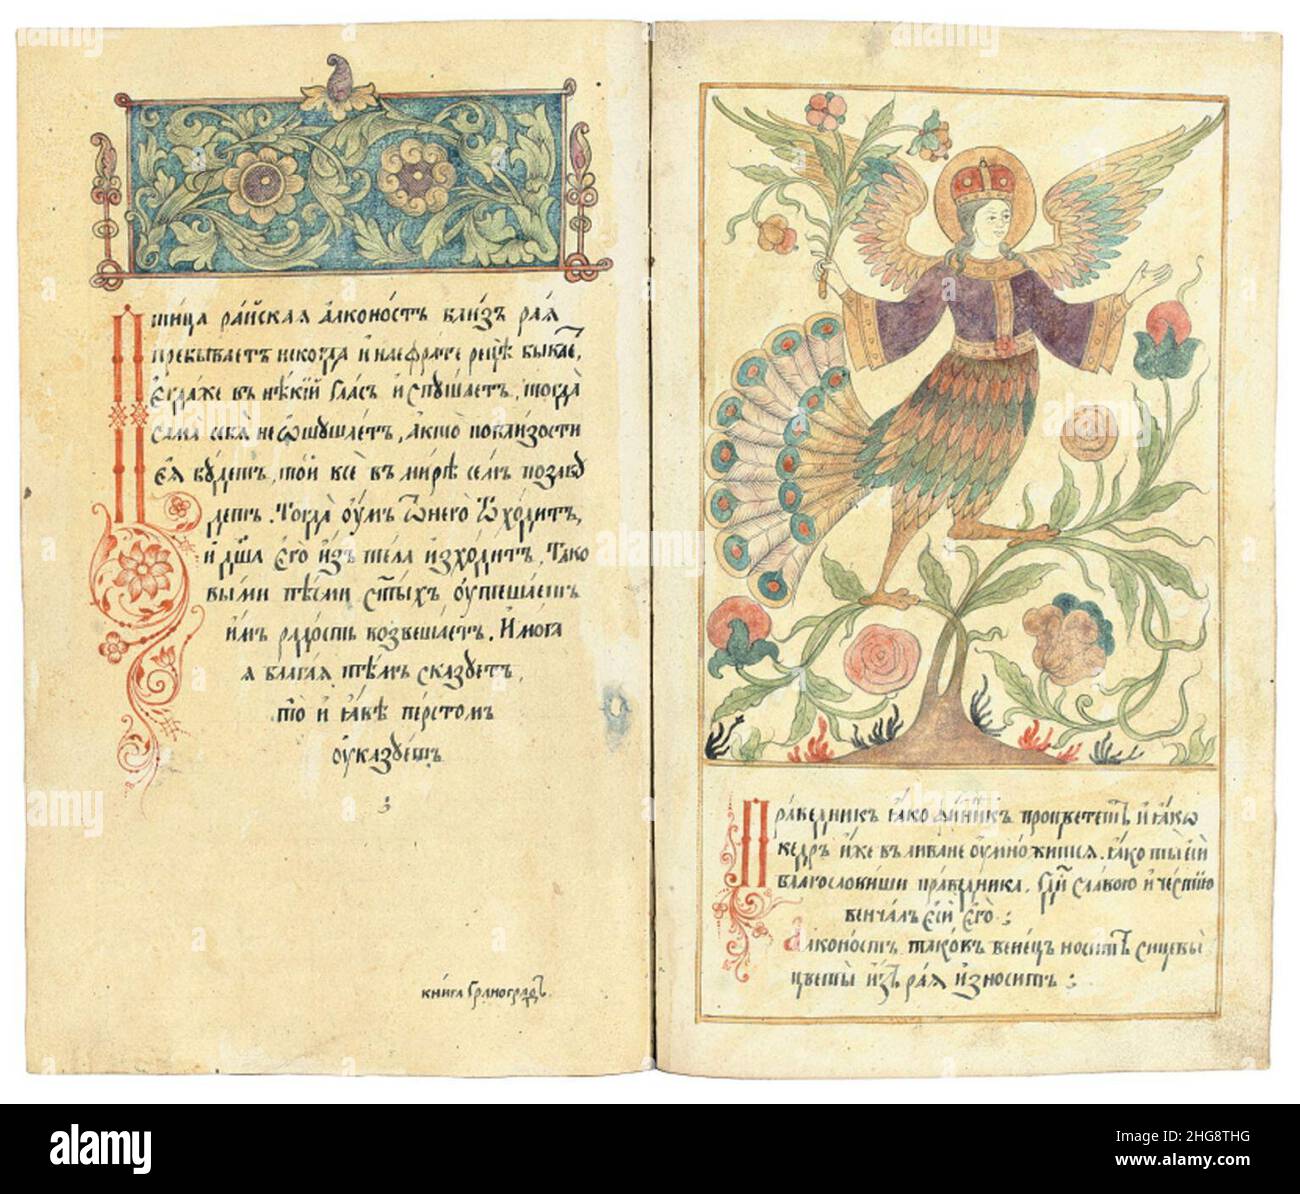 Птица ра́йская а҆лконо́стъ бли́зъ рая
пребыва́етъ нѣкогда и҆ на е҆фрате рецѣ быва́е,
е҆гда́ же въ нѣ́кїй гла́съ и҆спуща́етъ, тогда̀
сама̀ себѧ̀ не ѡ҆щуща́етъ, а҆ кто поблизости
е҆ѧ̀ бу́детъ, то́й всѐ въ ми́рѣ се́мъ позабу
детъ. Тогда̀ о҆у́мъ ѿ него̀ ѿхо́дитъ,
и҆ дш҃а е҆гѡ̀ и҆зъ тела и҆зхо́дитъ. Тако
выми пѣ́сми ст҃ы́хъ о҆утѣша́етъ
и҆мъ ра́дость возвеща́етъ. И҆ мога
ѧ блага́ѧ тѣ́мъ ска́зуетъ,
то̀ и҆ ꙗ҆́вѣ пе́рстомъ
о҆ука́зуетъ
книга Гранографъ.
Пра́ведникъ ꙗ҆́ко фи́никъ процвете́тъ и҆ ꙗ҆́кѡ
ке́дръ и҆́же въ лива́не о҆умно́житсѧ. ꙗ҆́ко ты̀ е҆сѝ
благослови́ши пра́ведника, гд҇и сла́вою и҆ че́стїю
венча́лъ е҆сѝ е҆го̀ :
Алконо́стъ тако́въ вене́цъ но́ситъ сицевы̀
цвѣты̀ и҆зъ ра́ѧ и҆зно́ситъ :
alamy
Image ID: 2HG8THG
www.alamy.com